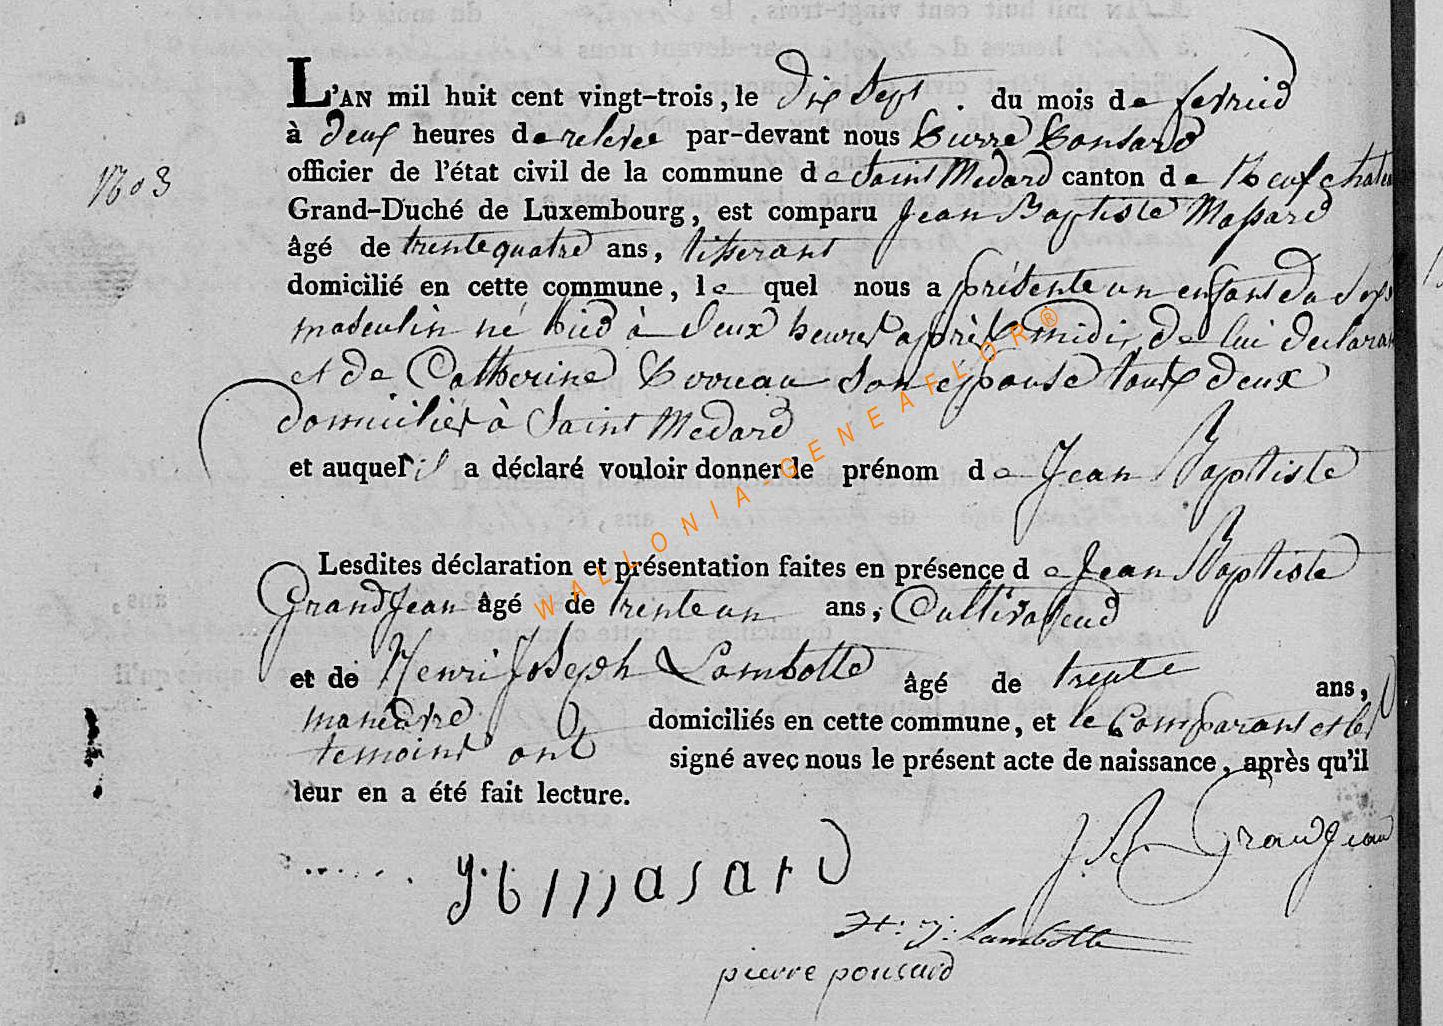 L'AN mil huit cent vingt-trois, le dix Sept. du mois de fevried
à deux heures de relevee par-devant nous Pierre Ponsard
officier de l'état civil de la commune de Saint Medard canton de Neufchateau
Grand-Duché de Luxembourg, est comparu Jean Baptiste Massard
âgé de trente quatre ans, tisserant
domicilié en cette commune, le quel nous a présenté un enfant du sexe
masculin né hied à deux heures après midi, de lui declarant
et de Catherine son epouse tous deux
domiciliés à Saint Medard
et auquel il a déclaré vouloir donner le prénom de Jean Baptiste
Lesdites déclaration et présentation faites en présence de Jean Baptiste
GrandJean âgé de trente un ans, Cultivateud
et de Henri Joseph Lambotte âgé de trente ans,
domiciliés en cette commune, et le Comparant et les
temoins ont signé avec nous le présent acte de naissance, après qu'il
leur en a été fait lecture.
J. B. GrandJean
J. b massard
H: J: Lambotte
pierre ponsard
WALLONIA-GENEAFLOR®